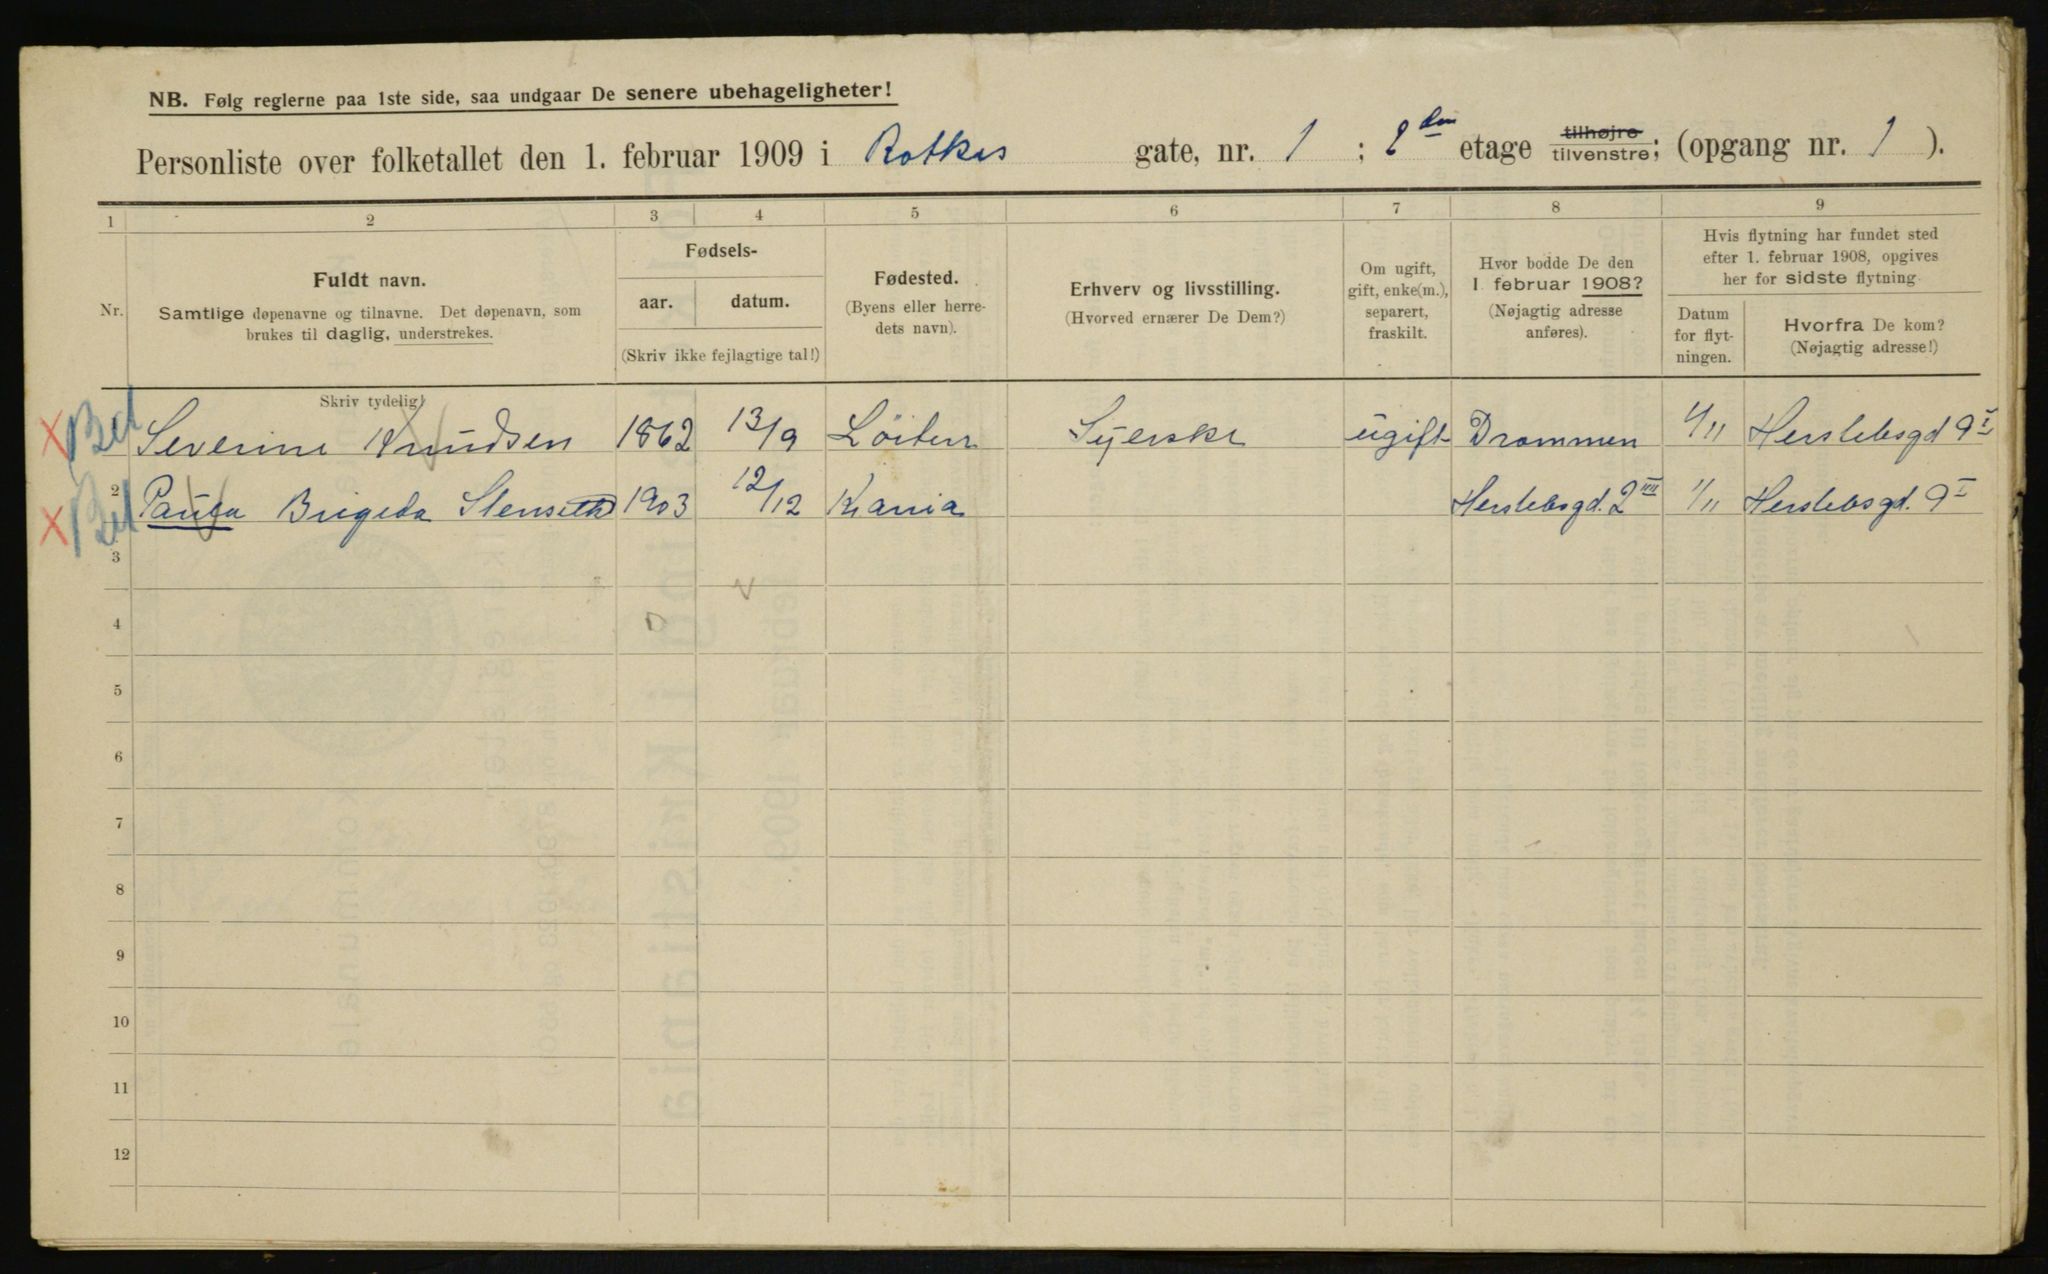 NB. Følg reglerne paa 1ste side, saa undgaar De senere ubehageligheter!
Personliste over folketallet den 1. februar 1909 i Ratkes gate, nr. 1 ; 2den etage tilhøjre tilvenstre; (opgang nr. 1 ).
1 2 3 4 5 6 7 8 9
Nr.
Fuldt navn.
Samtlige døpenavne og tilnavne. Det døpenavn, som
brukes til daglig, understrekes.
Skriv tydelig!
Fødsels-
aar. datum.
(Skriv ikke fejlagtige tal!)
Fødested.
(Byens eller herre-
dets navn).
Erhverv og livsstilling.
(Hvorved ernærer De Dem?)
Om ugift,
gift, enke(m.),
separert,
fraskilt.
Hvor bodde De den
1. februar 1908?
(Nøjagtig adresse
anføres).
Hvis flytning har fundet sted
efter 1. februar 1908, opgives
her for sidste flytning
Datum
for flyt-
ningen.
Hvorfra De kom?
(Nøjagtig adresse!)
Severine Knudsen 1862 13/9 Löiten Syerske ugift Drammen 1/11 Herslebsgd 9 I
2 Paula Brigeda Stenseth 1903 12/12 Kr.ania Herslebsgd. 2 IIII 1/11 Herslebsgd. 9 I
3
4
5
6
7
8
9
10
11
12